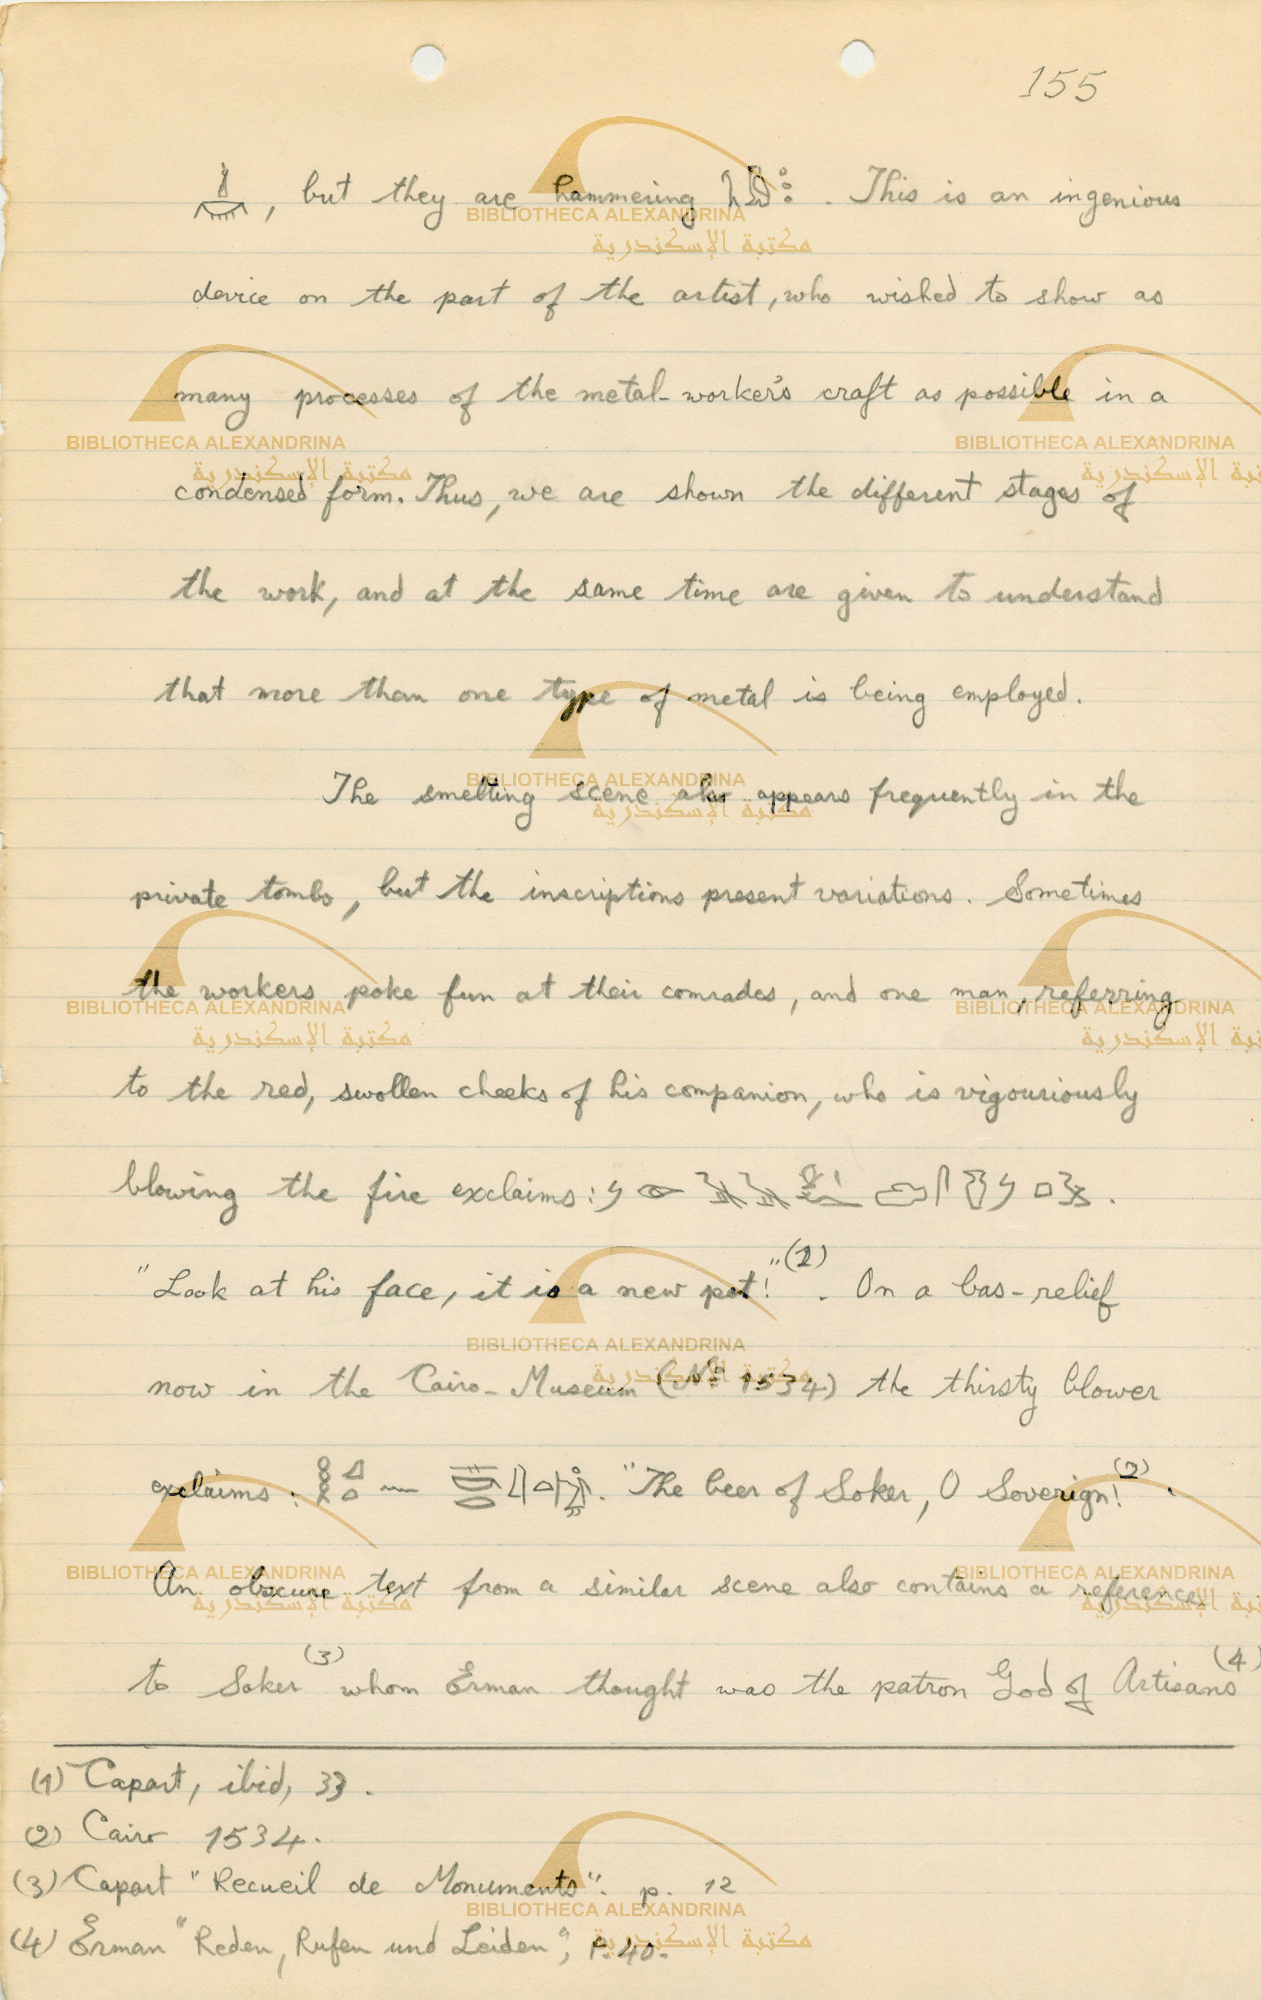 155
, but they are hammering . This is an ingenious
device on the part of the artist, who wished to show as
many processes of the metal-worker's craft as possible in a
condensed form. Thus, we are shown the different stages of
the work, and at the same time are given to understand
that more than one type of metal is being employed.
The smelting scene also appears frequently in the
private tombs, but the inscriptions present variations. Sometimes
the workers poke fun at their comrades, and one man, referring
to the red, swollen cheeks of his companion, who is vigouriously
blowing the fire exclaims: .
"Look at his face, it is a new pot!"(1). On a bas-relief
now in the Cairo-Museum (No 1534) the thirsty blower
exclaims: . "The beer of Soker, O Soverign!(2) .
An obscure text from a similar scene also contains a reference
to Soker (3) whom Erman thought was the patron God of Artisans (4)
(1) Capart, ibid, 33.
(2) Cairo 1534.
(3) Capart "Recueil de Monuments". p. 12
(4) Erman "Reden, Rufen und Leiden", P. 40.
BIBLIOTHECA ALEXANDRINA
مكتبة الإسكندرية